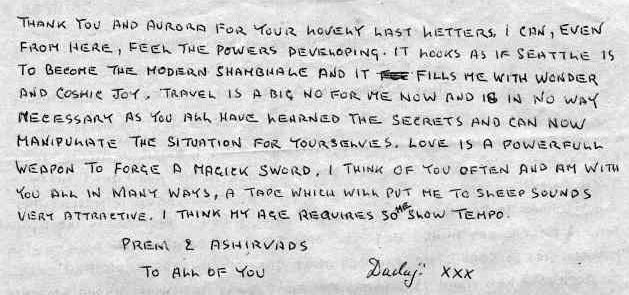 THANK YOU AND AURORA FOR YOUR LOVELY LAST LETTERS. I CAN, EVEN
FROM HERE, FEEL THE POWERS DEVELOPING. IT LOOKS AS IF SEATTLE IS
TO BECOME THE MODERN SHAMBHALE AND IT FILLS ME WITH WONDER
AND COSMIC JOY. TRAVEL IS A BIG NO FOR ME NOW AND IS IN NO WAY
NECESSARY AS YOU ALL HAVE LEARNED THE SECRETS AND CAN NOW
MANIPULATE THE SITUATION FOR YOURSELVES. LOVE IS A POWERFULL
WEAPON TO FORGE A MAGICK SWORD. I THINK OF YOU OFTEN AND AM WITH
YOU ALL IN MANY WAYS, A TAPE WHICH WILL PUT ME TO SLEEP SOUNDS
VERY ATTRACTIVE. I THINK MY AGE REQUIRES SOME SLOW TEMPO.
PREM & ASHIRVADS
TO ALL OF YOU Dadaji XXX